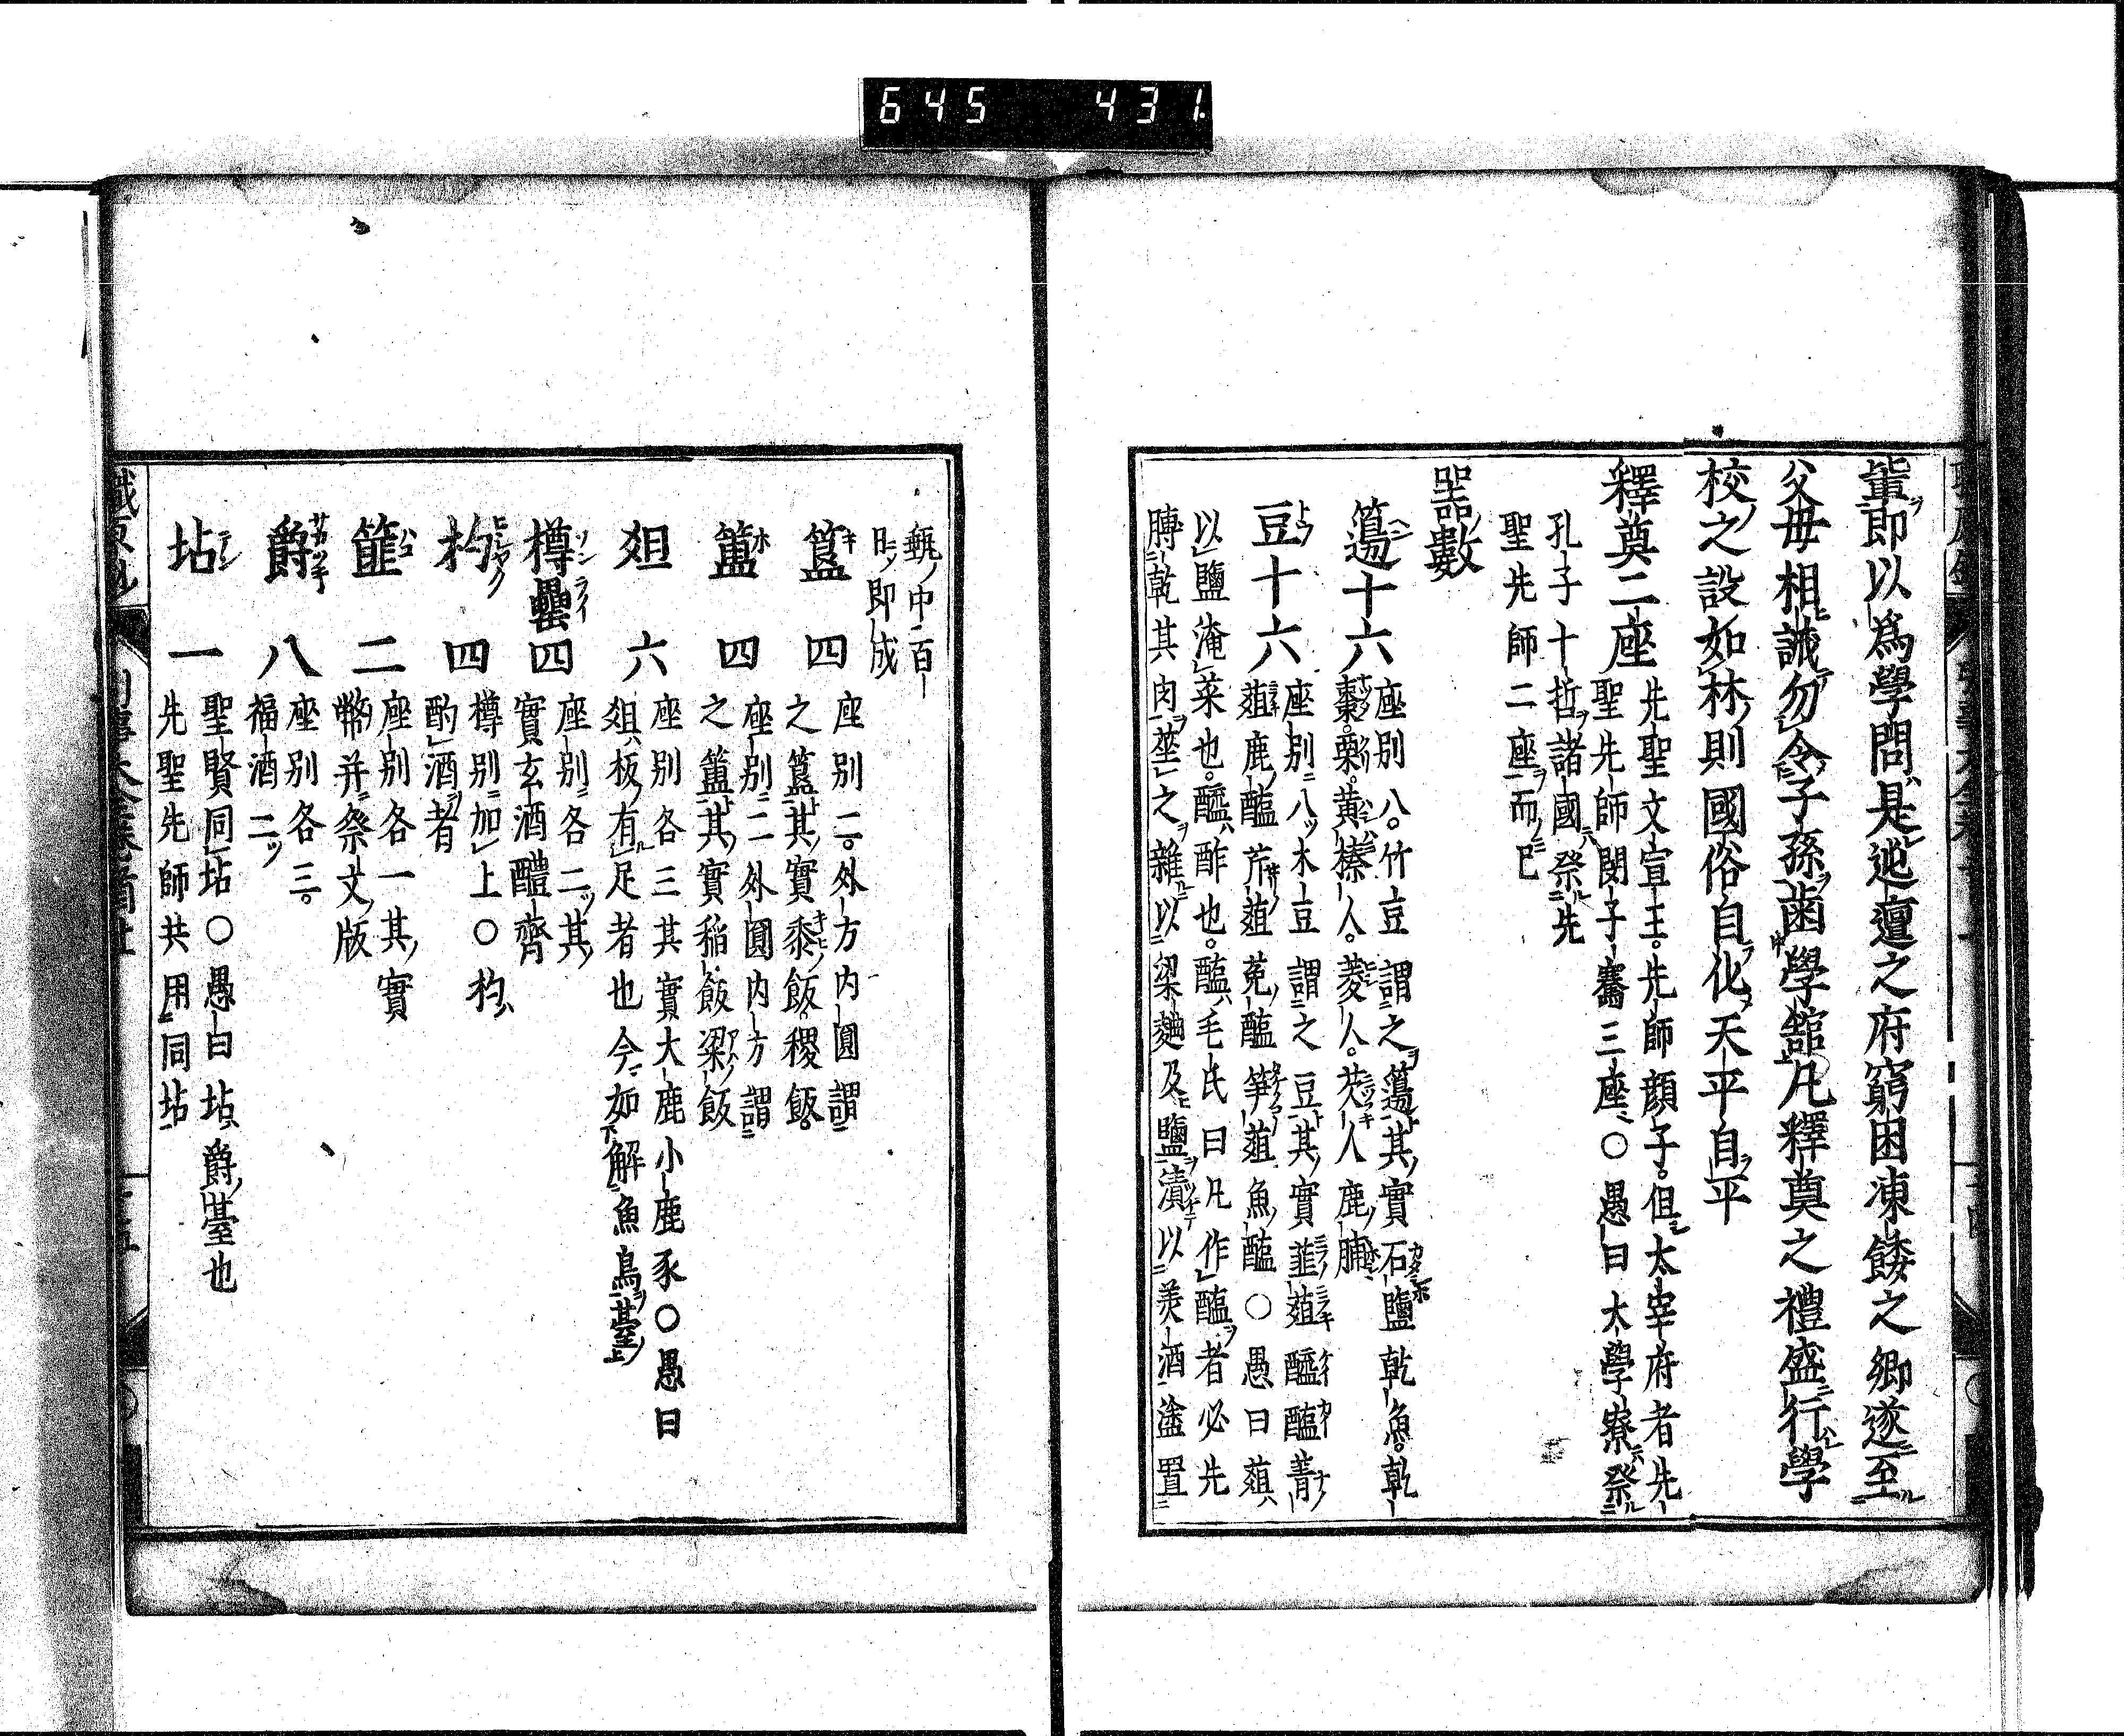 645 431
軰即以爲學問是迆邅之府窮困凍餧之郷遂至
父毋相誡勿令子孫歯學舘凡釋奠之禮盛行學
校之設如林則國俗自化天平自平
釋奠二座
先聖文宣王。先師顔子。但太宰府者先
聖先師閔子騫三座〇愚曰太學寮祭
孔子十哲諸國祭先
聖先師二座而已
噐數
籩十六
座別八。竹豆謂之籩其實石鹽乾魚。乾
棗。栗。黄榛人。菱人。芡人鹿脯
豆十六
座別八木豆謂之豆其實韮葅醓醢菁
葅鹿醢芹葅兎醢笋葅魚醢〇愚曰葅
以鹽淹菜也。醓酢也。醢毛氏曰凡作醢者必先
膞乾其肉莝之雜以粱麹及鹽漬以美酒塗置
甀中百
日即成
簋 四
座別二。外方内圓謂
之簋其實黍飯。稷飯。
簠 四
座別二外圓内方謂
之簠其實稲飯粱飯
爼 六
座別各三其實大鹿小鹿豕〇愚曰
爼板有足者也今如解魚鳥基臺上
樽罍四
座別各二其
實玄酒醴齊
杓 四
樽別加上〇杓
酌酒者
篚 二
座別各一其實
幣并祭文版
爵 八
座別各三。
福酒二
坫 一
聖賢同坫〇愚曰坫爵臺也
先聖先師共用同坫